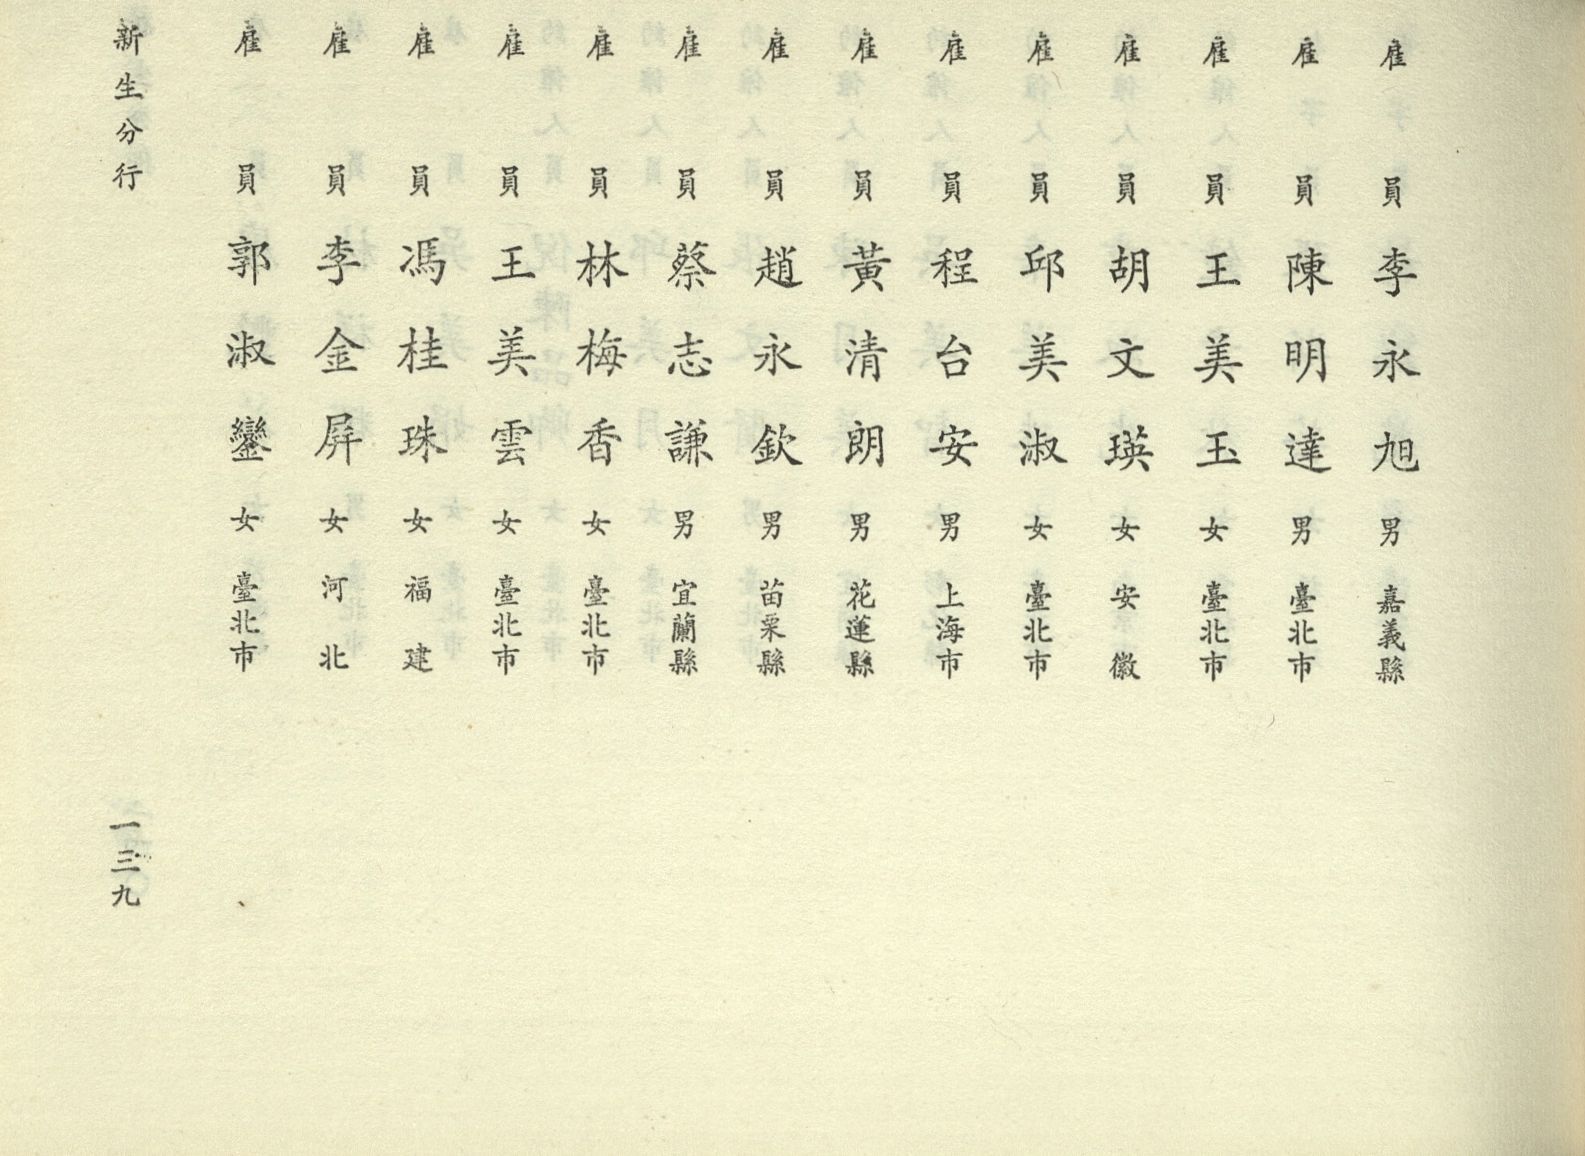 雇員李永旭男嘉義縣
雇員陳明達男臺北市
雇員王美玉女臺北市
雇員胡文瑛女安徽
雇員邱美淑女臺北市
雇員程台安男上海市
雇員黃清朗男花蓮縣
雇員趙永欽男苗栗縣
雇員蔡志謙男宜蘭縣
雇員林梅香女臺北市
雇員王美雲女臺北市
雇員馮桂珠女福建
雇員李金屏女河北
雇員郭淑鑾女臺北市
新生分行
一三九